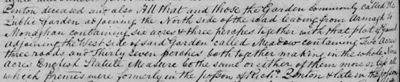 Linton deceased and also All that and those the Garden Commonly called the
Publick Garden adjoining the North side of the road leading from Armagh to
Monaghan containing six acres & three perches together with that plot of Ground
adjoining the West side of said Garden called the Meadow containing Two Acres
three roods and thirty seven perches both together making in the whole Nine
acres English Statute Measure be the same or either of them more or less all
which premes were formerly in the posson of Linton & late in the posson